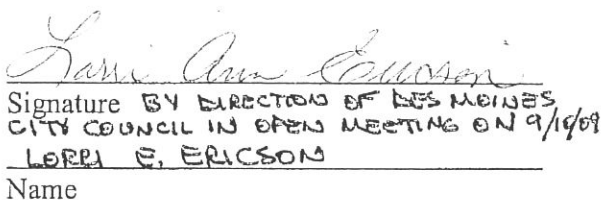 Lorri Ann Ericson
Signature BY DIRECTION OF DES MOINES
CITY COUNCIL IN OPEN MEETING ON 9/10/09
LORRI E. ERICSON
Name